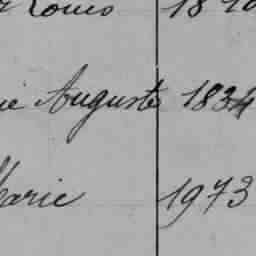 Louis 18
ie Auguste 1834
Marie 1973